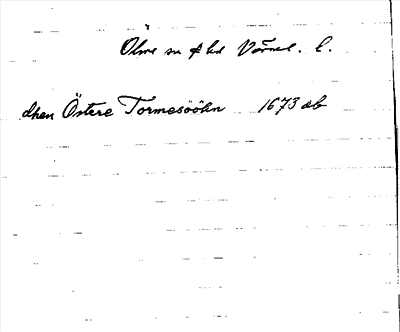 Ölme sn o hd Värml. l.
dhen Östere Tormesööhn 1673 ab